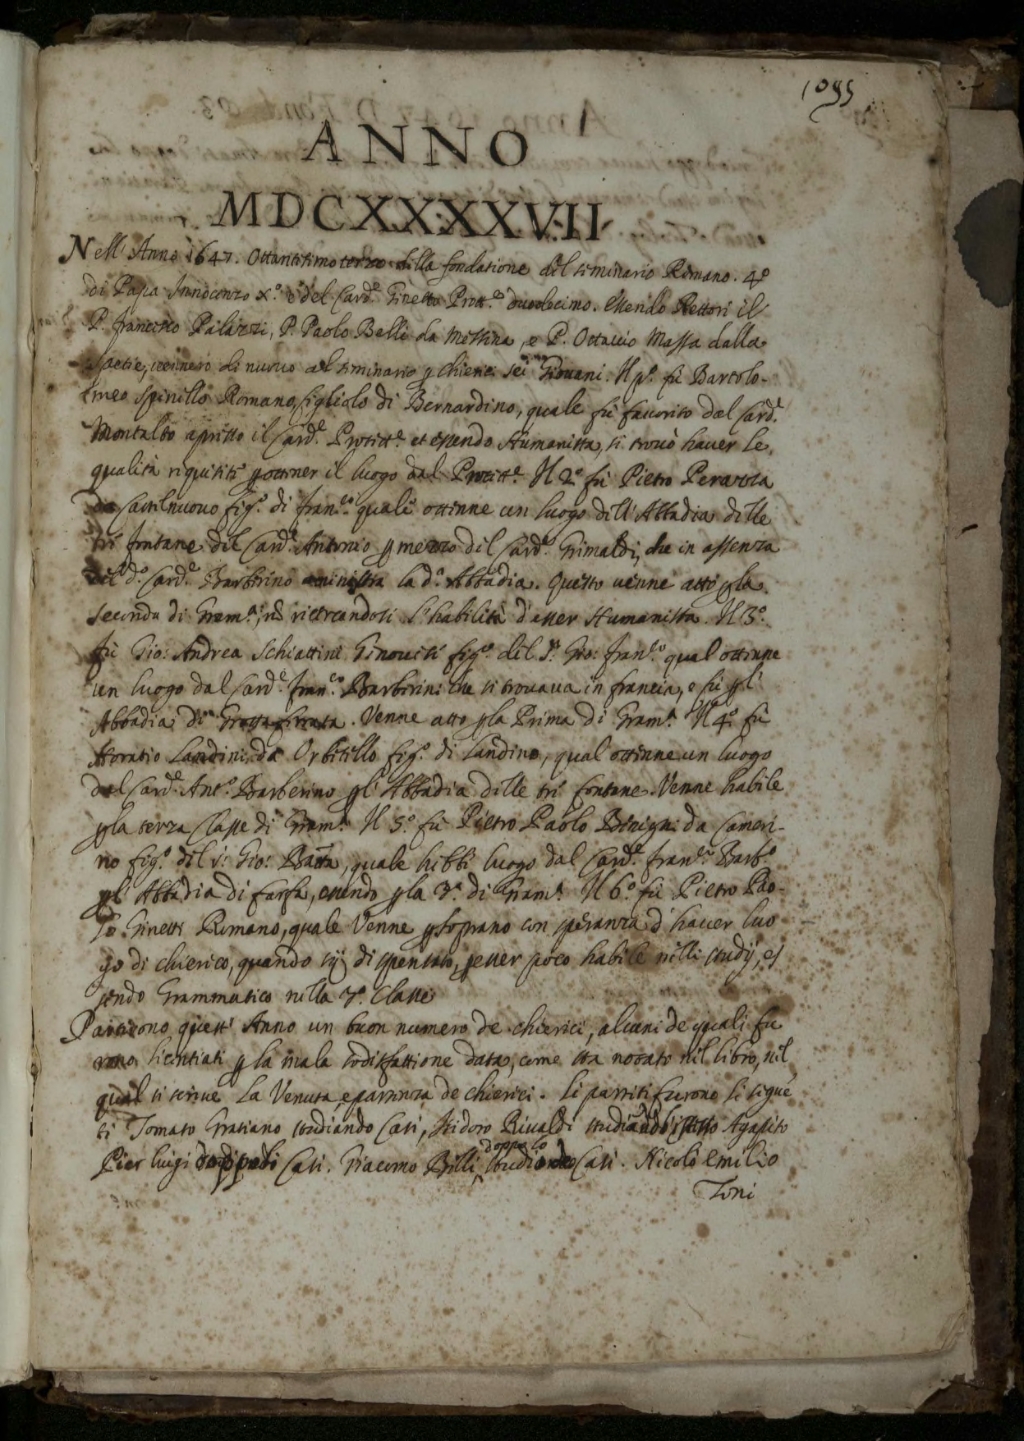 1099
ANNO
MDCXXXXVII
Nell' Anno 1647. Ottantesimoterzo della fondatione del seminario Romano. 4º
di Papa Innocenzo Xº. e del Card.e Ginetti Prott.e duodecimo. Essendo Rettori il
P. Francesco Palazzi, P. Paolo Belli da Messina, e P. Ottavio Massa dalla
Spetie, vennero di nuovo al seminario p chierici sei Giovani. Il pº. fu Bartolo-
meo Spinillo Romano figliolo di Bernardino, quale fu favorito dal Card.e
Montalto apresso il Card.e Protett.e et essendo Humanista, si trovò haver le
qualità riquisiti p ottener il luogo dal Protett.e Il 2º fu Pietro Perazza
da Castelnuovo figº. di Fran.co quale ottenne un luogo dell' Abbadia delle
tre fontane del Card.e Antonio p mezzo del Card.e Grimaldi, che in assenza
del dº. Card.e Barberino ministra la dª. Abbadia. Questo venne atto p la
seconda di Gram.ª, nò ricercandosi l'habilità d'esser Humanista. Il 3º.
fu Gio: Andrea Schiattini Genovese figº. del S.r Gio: Fran.co qual ottenne
un luogo dal Card.e Fran.co Barberini che si trovava in francia, e fu p l'
Abbadia di Grotta ferrata. Venne atto p la Prima di Gram.ª Il 4º. fu
Horatio Landini da Orbitello figº. di Landino, qual ottenne un luogo
dal Card.e Ant.º Barberino p l' Abbadia delle tre fontane. Venne habile
p la terza Classe di Gram.ª Il 5º. fu Pietro Paolo da Cameri-
no figº. del s: Gio: Batta, quale hebbe luogo dal Card.e Fran.co Barb.º
p l' Abbadia di Farfa, essendo p la 3ª. di Gram.ª Il 6º. fu Pietro Pao-
lo Ginetti Romano, quale Venne p soprano con speranza d'haver luo
go di chierico, quando sij dispensato, p esser poco habile nelli studij, es
sendo Grammatico nella 3ª. Classe
Partirono quest' Anno un buon numero de chierici, alcuni de quali fu
rono licentiati p la mala sodisfattione data, come sta notato nel libro, nel
qual si scrive La Venuta, e partenza de chierici. Li partiti furono li segue
ti Tomaso Gratiano studiando Casi, Isidoro Rivaldi studiando Agapito
Pier luigi Casi. Giacomo Billi, doppo lo studio de Casi. Nicolo Emilio
Toni